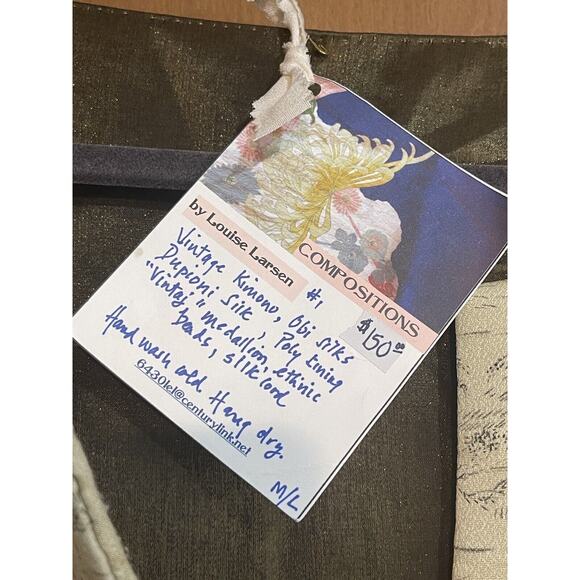 COMPOSITIONS
by Louise Larsen
#1
$150.00
Vintage Kimono, Obi silks
Dupioni silk, Poly Lining
"Vintaj" medallion, ethnic
beads, silk cord
Hand wash cold Hang dry.
6430lel@centurylink.net
M/L